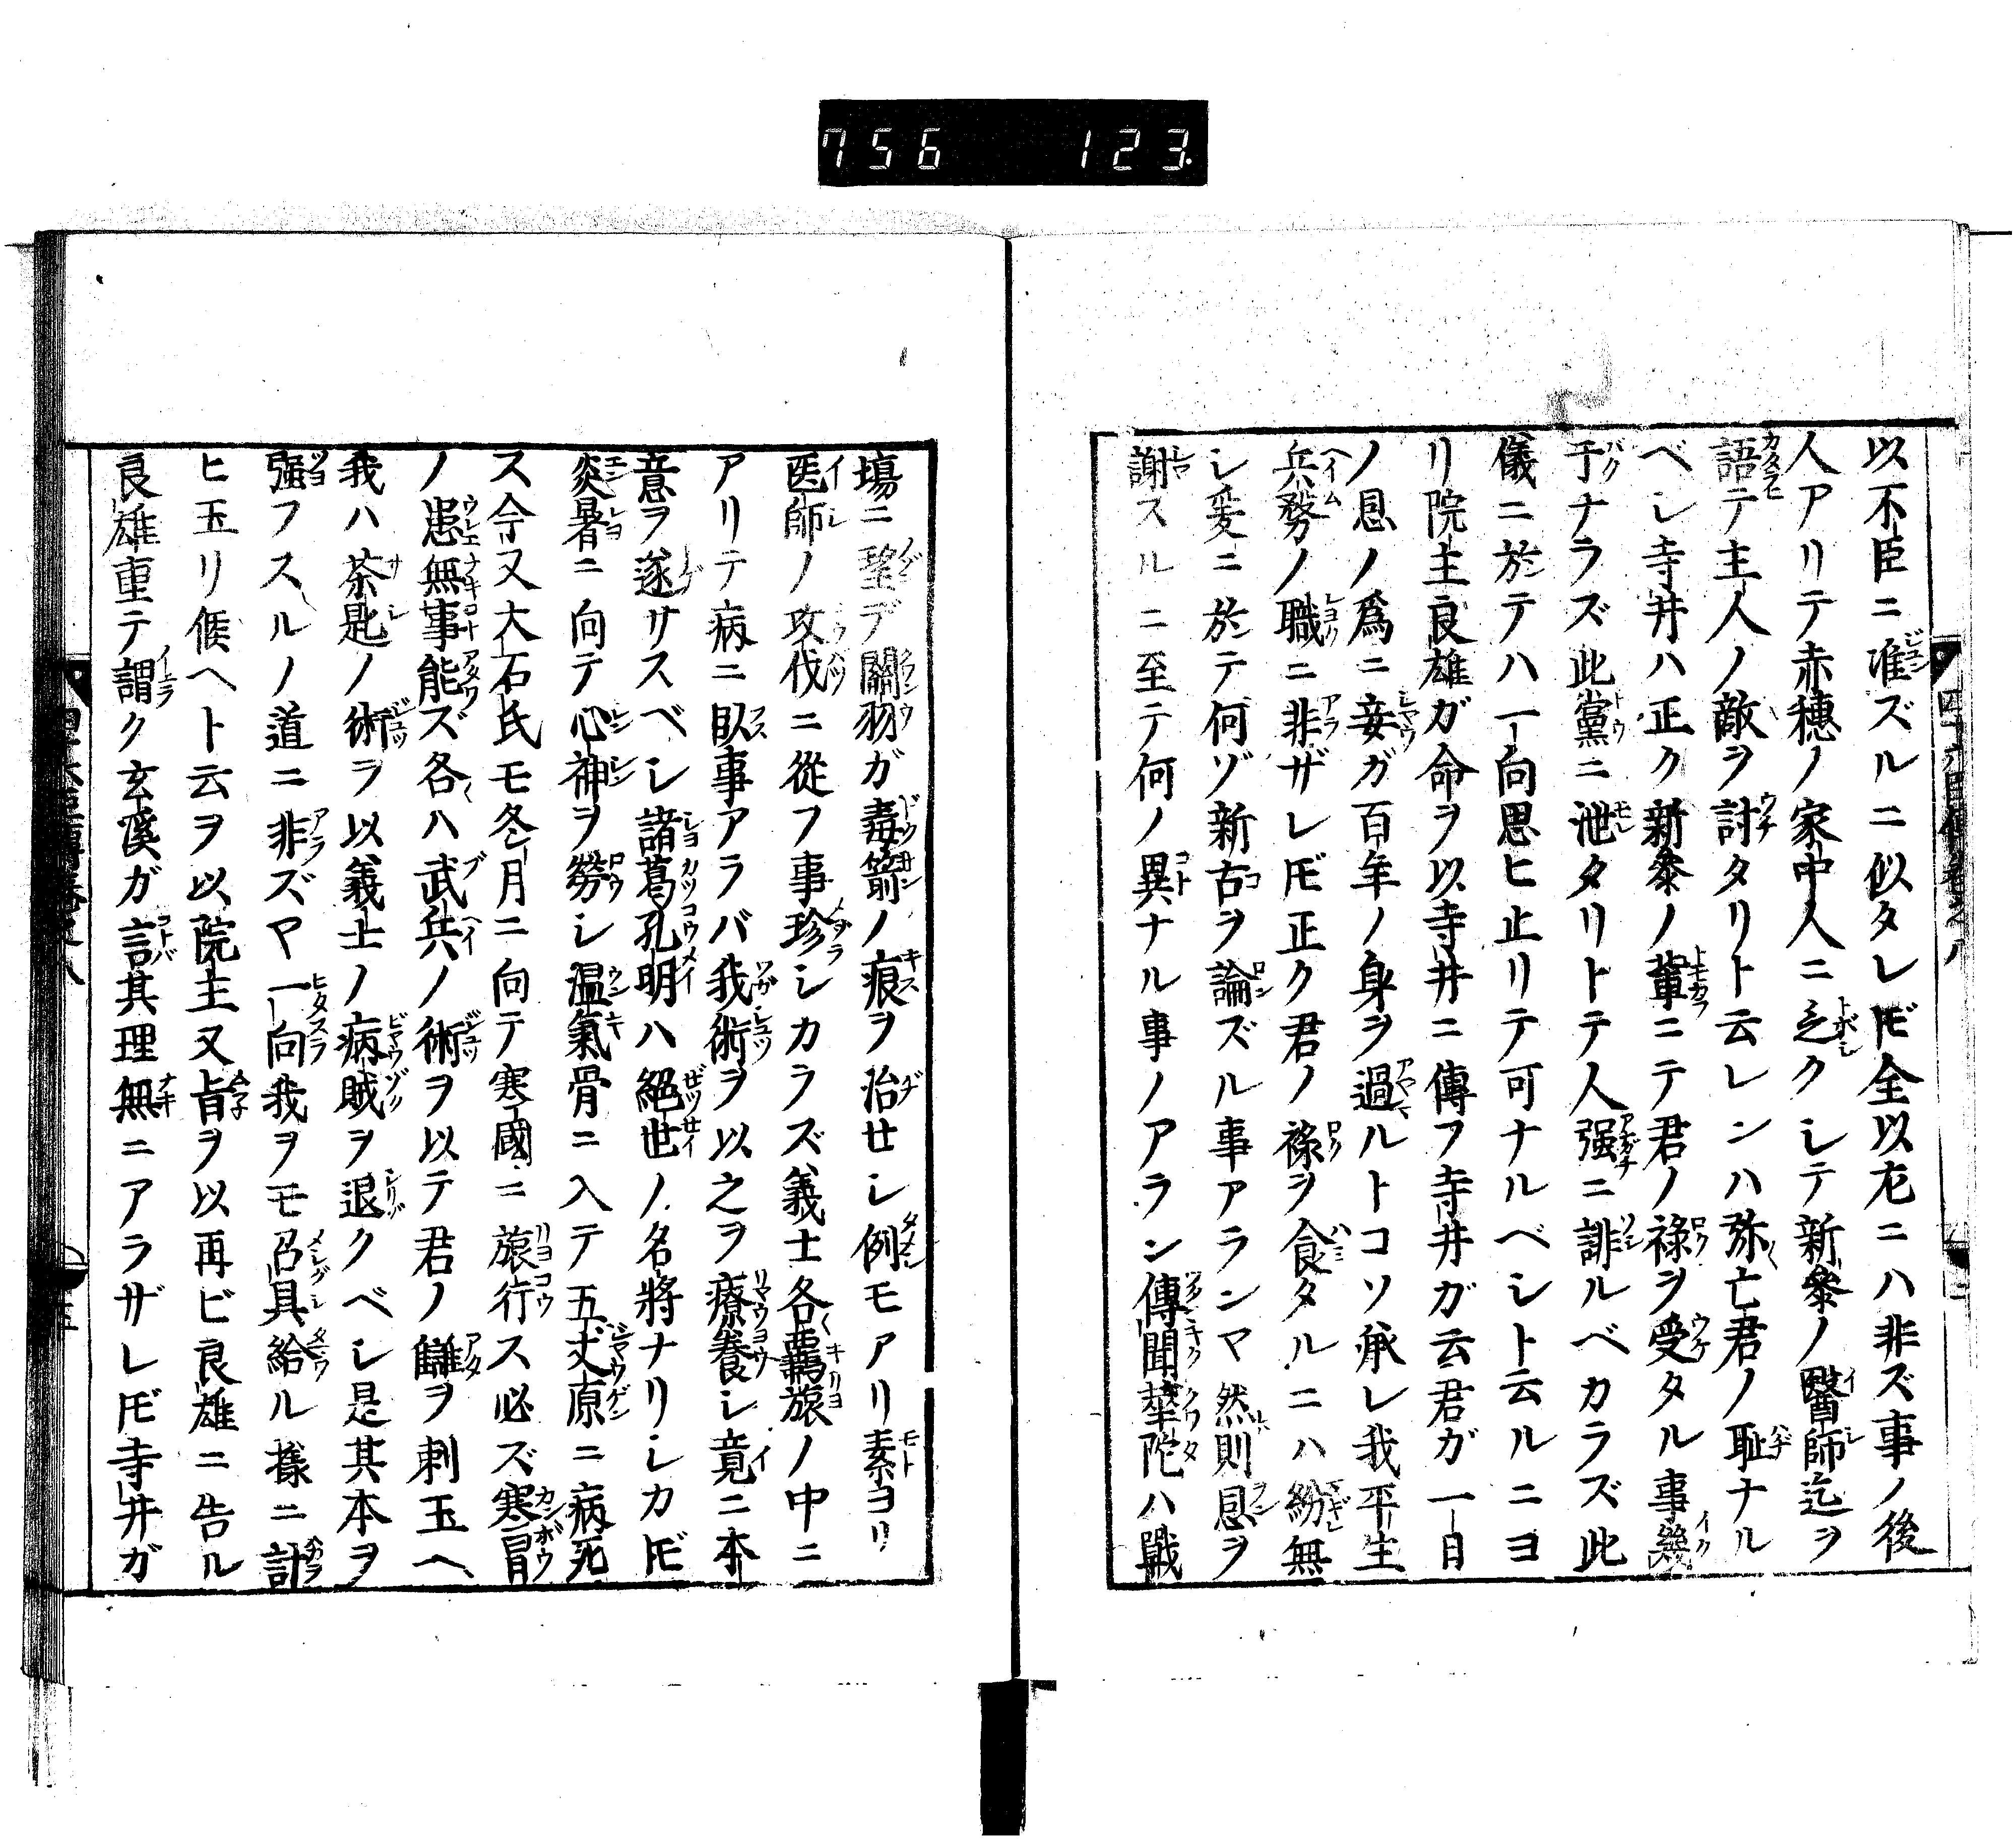 756 123
以不臣ニ准ズルニ似タレ𪜈全以尤ニハ非ズ事ノ後
人アリテ赤穗ノ家中人ニ乏クシテ新參ノ醫師迄ヲ
語テ主人ノ敵ヲ討タリト云レンハ弥亡君ノ耻ナル
ベシ寺井ハ正ク新參ノ輩ニテ君ノ祿ヲ受タル事幾
于ナラズ此黨ニ泄タリトテ人强ニ誹ルベカラズ此
儀ニ於テハ一向思ヒ止リテ可ナルベシト云ルニヨ
リ院主良雄ガ命ヲ以寺井ニ傳フ寺井ガ云君ガ一日
ノ恩ノ爲ニ妾ガ百年ノ身ヲ過ルトコソ承レ我平生
兵務ノ職ニ非ザレ𪜈正ク君ノ祿ヲ食タルニハ紛無
シ爰ニ於テ何ゾ新古ヲ論ズル事アランマ然則恩ヲ
謝スルニ至テ何ノ異ナル事ノアラン傳聞華陀ハ戰
塲ニ臨デ關羽ガ毒箭ノ痕ヲ治セシ例モアリ素ヨリ
医師ノ攻伐ニ從フ事珍シカラズ義士各羈旅ノ中ニ
アリテ病ニ臥事アラバ我術ヲ以之ヲ療養シ竟ニ本
意ヲ遂サスベシ諸葛孔明ハ絕世ノ名將ナリシカ𪜈
炎暑ニ向テ心神ヲ勞シ温氣骨ニ入テ五丈原ニ病死
ス今又大石氏モ冬月ニ向テ寒國ニ旅行ス必ズ寒冒
ノ患無事能ズ各ハ武兵ノ術ヲ以テ君ノ讎ヲ刺玉ヘ
我ハ茶匙ノ術ヲ以義士ノ病賊ヲ退クベシ是其本ヲ
强フスルノ道ニ非ズマ一向我ヲモ召具給ル樣ニ計
ヒ玉リ候ヘト云ヲ以院主又旨ヲ以再ビ良雄ニ告ル
良雄重テ謂ク玄溪ガ言其理無ニアラザレ𪜈寺井ガ